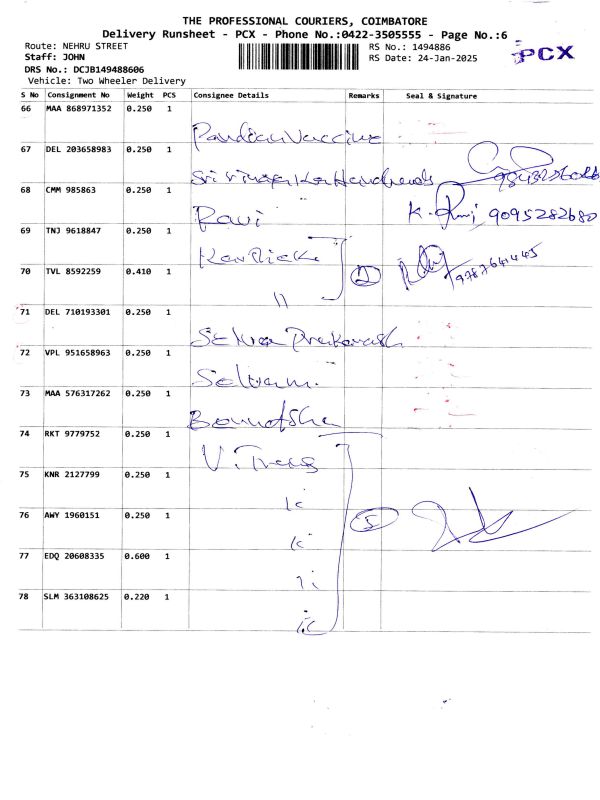 THE PROFESSIONAL COURIERS, COIMBATORE
Delivery Runsheet - PCX - Phone No.:0422-3505555 - Page No.:6
Route: NEHRU STREET RS No.: 1494886 PCX
Staff: JOHN RS Date: 24-Jan-2025
DRS No.: DCJB149488606
Vehicle: Two Wheeler Delivery
S No Consignment No Weight PCS Consignee Details Remarks Seal & Signature
66 MAA 868971352 0.250 1
Pandian Vaccine
67 DEL 203658983 0.250 1
Sri
68 CMM 985863 0.250 1
Ravi K. 9095282680
69 TNJ 9618847 0.250 1
70 TVL 8592259 0.410 1 2 9787641445
11
71 DEL 710193301 0.250 1
Selva Prakash
72 VPL 951658963 0.250 1
Selvam.
73 MAA 576317262 0.250 1
74 RKT 9779752 0.250 1
V. Trans
75 KNR 2127799 0.250 1
76 AWY 1960151 0.250 1 5
77 EDQ 20608335 0.600 1
78 SLM 363108625 0.220 1